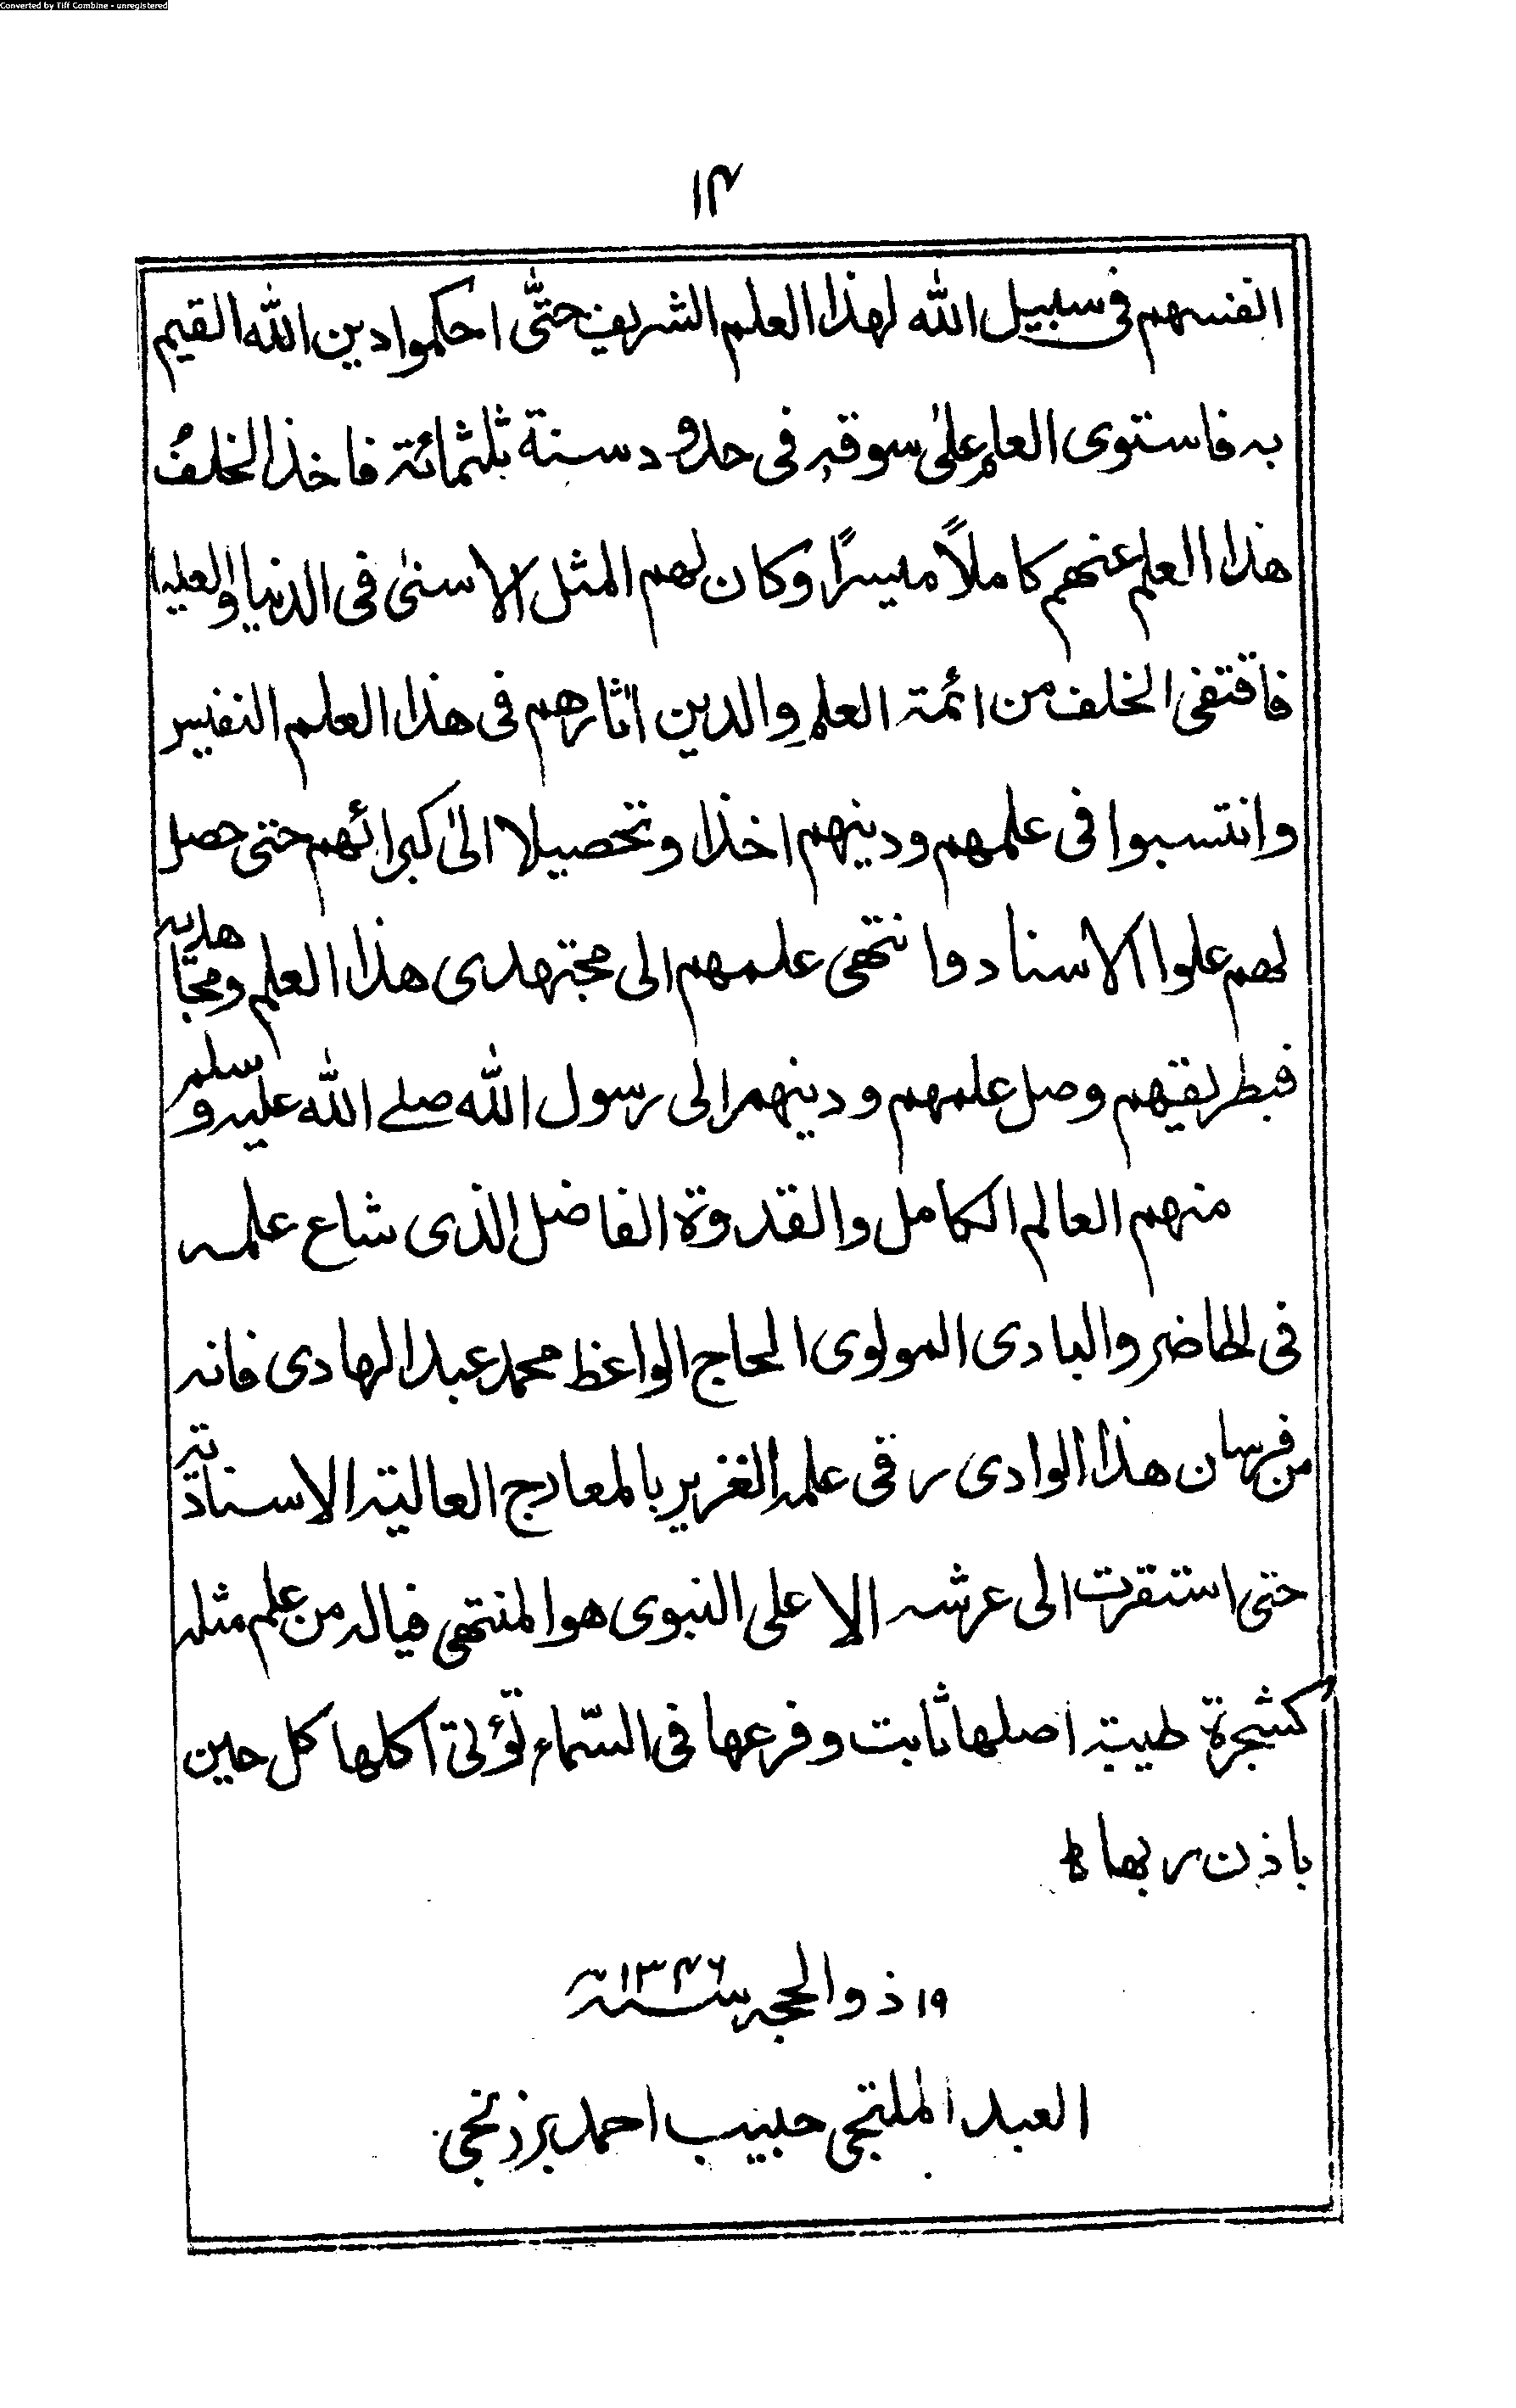 Converted by Tiff Combine - unregistered
۱۴
انفسهم فى سبيل الله لهذا العلم الشريف حتّى احكموا دين الله القيم
به فاستوى العلم على سوقه فى حدود سنة ثلثمائة فاخذ الخلفُ
هذا العلم عنهم كاملاً ميسرًا وكان لهم المثل الاسنى فى الدنيا والعليا
فاقتفى الخلف من ائمة العلم والدين اثارهم فى هذا العلم النفيس
وانتسبوا فى علمهم ودينهم اخذا وتحصيلا الى كبرائهم حتى حصل
لهم علوا الاسناد وانتهى علمهم الى مجتهدى هذا العلم ومجاهديه
فبطريقهم وصل علمهم ودينهم الى رسول الله صلے الله عليه وسلم
منهم العالم الكامل والقدوة الفاضل الذى شاع علمه
فى الحاضر والبادى المولوى الحاج الواعظ محمد عبد الهادى فانه
من فرسان هذا الوادى رقى علمه الغزير بالمعارج العالية الاسنادية
حتى استقرت الى عرشه الاعلى النبوى هو المنتهى فياله من علم مثله
كشجرة طيبة اصلها ثابت وفرعها فى السّماء تؤتى اكلها كل حين
باذن ربها ط
۱۹ ذو الحجه سنه ۱۳۴۶
العبد الملتجى حبيب احمد برزنجى